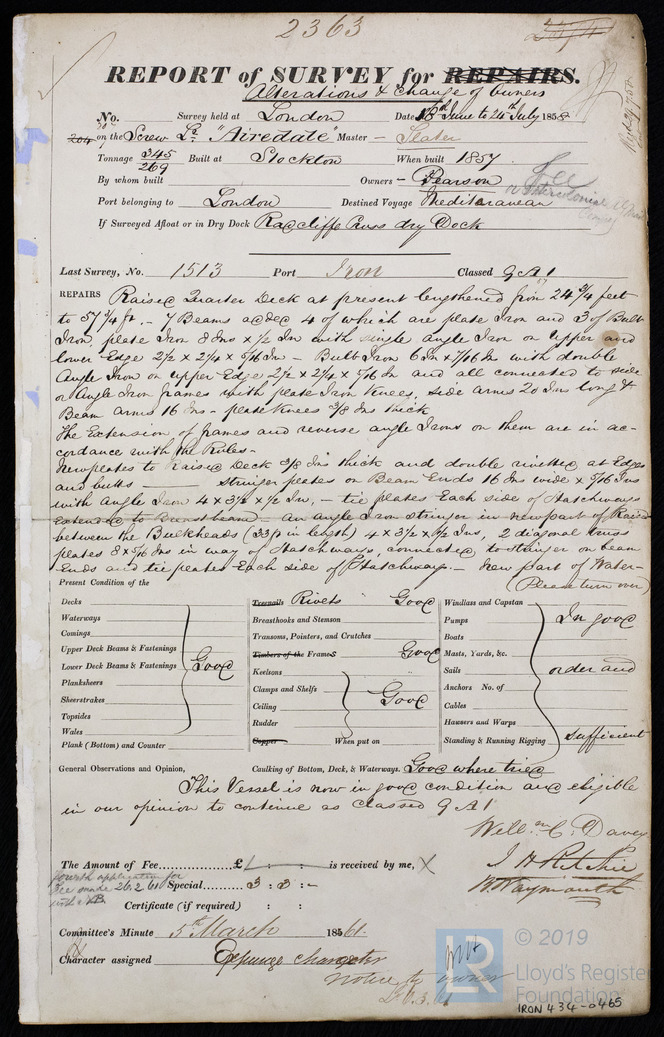 2363
REPORT of SURVEY for REPAIRS.
Alterations & Change of Owners
No. Survey held at London Date 18th June to 24th July 1858
on the Screw Sr. "Airedale" Master - Slater
Tonnage 345 Built at Stockton When built 1857
269
By whom built Owners - Pearson
Port belonging to London Destined Voyage Mediteranean
If Surveyed Afloat or in Dry Dock Radcliffe Cross dry Dock
Last Survey, No. 1513 Port Iron Classed 9 A 1
REPAIRS Raised Quarter Deck at present lengthened from 24 3/4 feet
to 57 3/4 ft. - 7 Beams added 4 of which are plate Iron and 3 of Bulb
Iron, plate Iron 8 Ins x 1/2 In with single angle Iron on upper and
lower Edge 2 1/2 x 2 1/4 x 5/16 In - Bulb Iron 6 In x 7/16 In with double
Angle Iron on upper Edge 2 1/2 x 2 1/4 x 5/16 In and all connected to side
or Angle Iron frames with plate Iron Knees, side arms 20 Ins long &
Beam arms 16 Ins - plate Knees 3/8 Ins thick
The Extension of frames and reverse angle Irons on them are in ac-
cordance with the Rules -
New plates to Raised Deck 3/8 Ins thick and double rivetted at Edges
and butts - stringer plates on Beam Ends 16 Ins wide x 5/16 Ins
with angle Iron 4 x 3 1/2 x 1/2 Ins, - tie plates Each side of Hatchways
Extended to - An angle Iron stringer in new part of Raised
between the Bulkheads (33 ft in length) 4 x 3 1/2 x 1/2 Ins, 2 diagonal truss
plates 8 x 5/16 Ins in way of Hatchways, connected to stringer on beam
Ends and tie plates Each side of Hatchways. - New part of Water-
(Please turn over)
Present Condition of the
Decks
Waterways
Comings
Upper Deck Beams & Fastenings
Lower Deck Beams & Fastenings Good
Planksheers
Sheerstrakes
Topsides
Wales
Plank (Bottom) and Counter
Treenails Rivets Good
Breasthooks and Stemson
Transoms, Pointers, and Crutches
Timbers of the Frames Good
Keelsons
Clamps and Shelfs Good
Ceiling
Rudder
Copper When put on
Windlass and Capstan
Pumps In good
Boats
Masts, Yards, &c.
Sails order and
Anchors No. of
Cables
Hawsers and Warps
Standing & Running Rigging sufficient
General Observations and Opinion, Caulking of Bottom, Deck, & Waterways. Good where tried
This Vessel is now in good condition and eligible
in our opinion to continue as classed 9 A 1
Willm C. Davey
J H Ritchie
B. Waymouth
The Amount of Fee............... £1 : : is received by me,
fourth application for
fee made 26.2.61 Special......... 3 : 3 : -
Certificate (if required) : :
Committee's Minute 5th March 1861.
Character assigned Expunge character
notice to owner
© 2019
Lloyd's Register
Foundation
IRON 434-0465